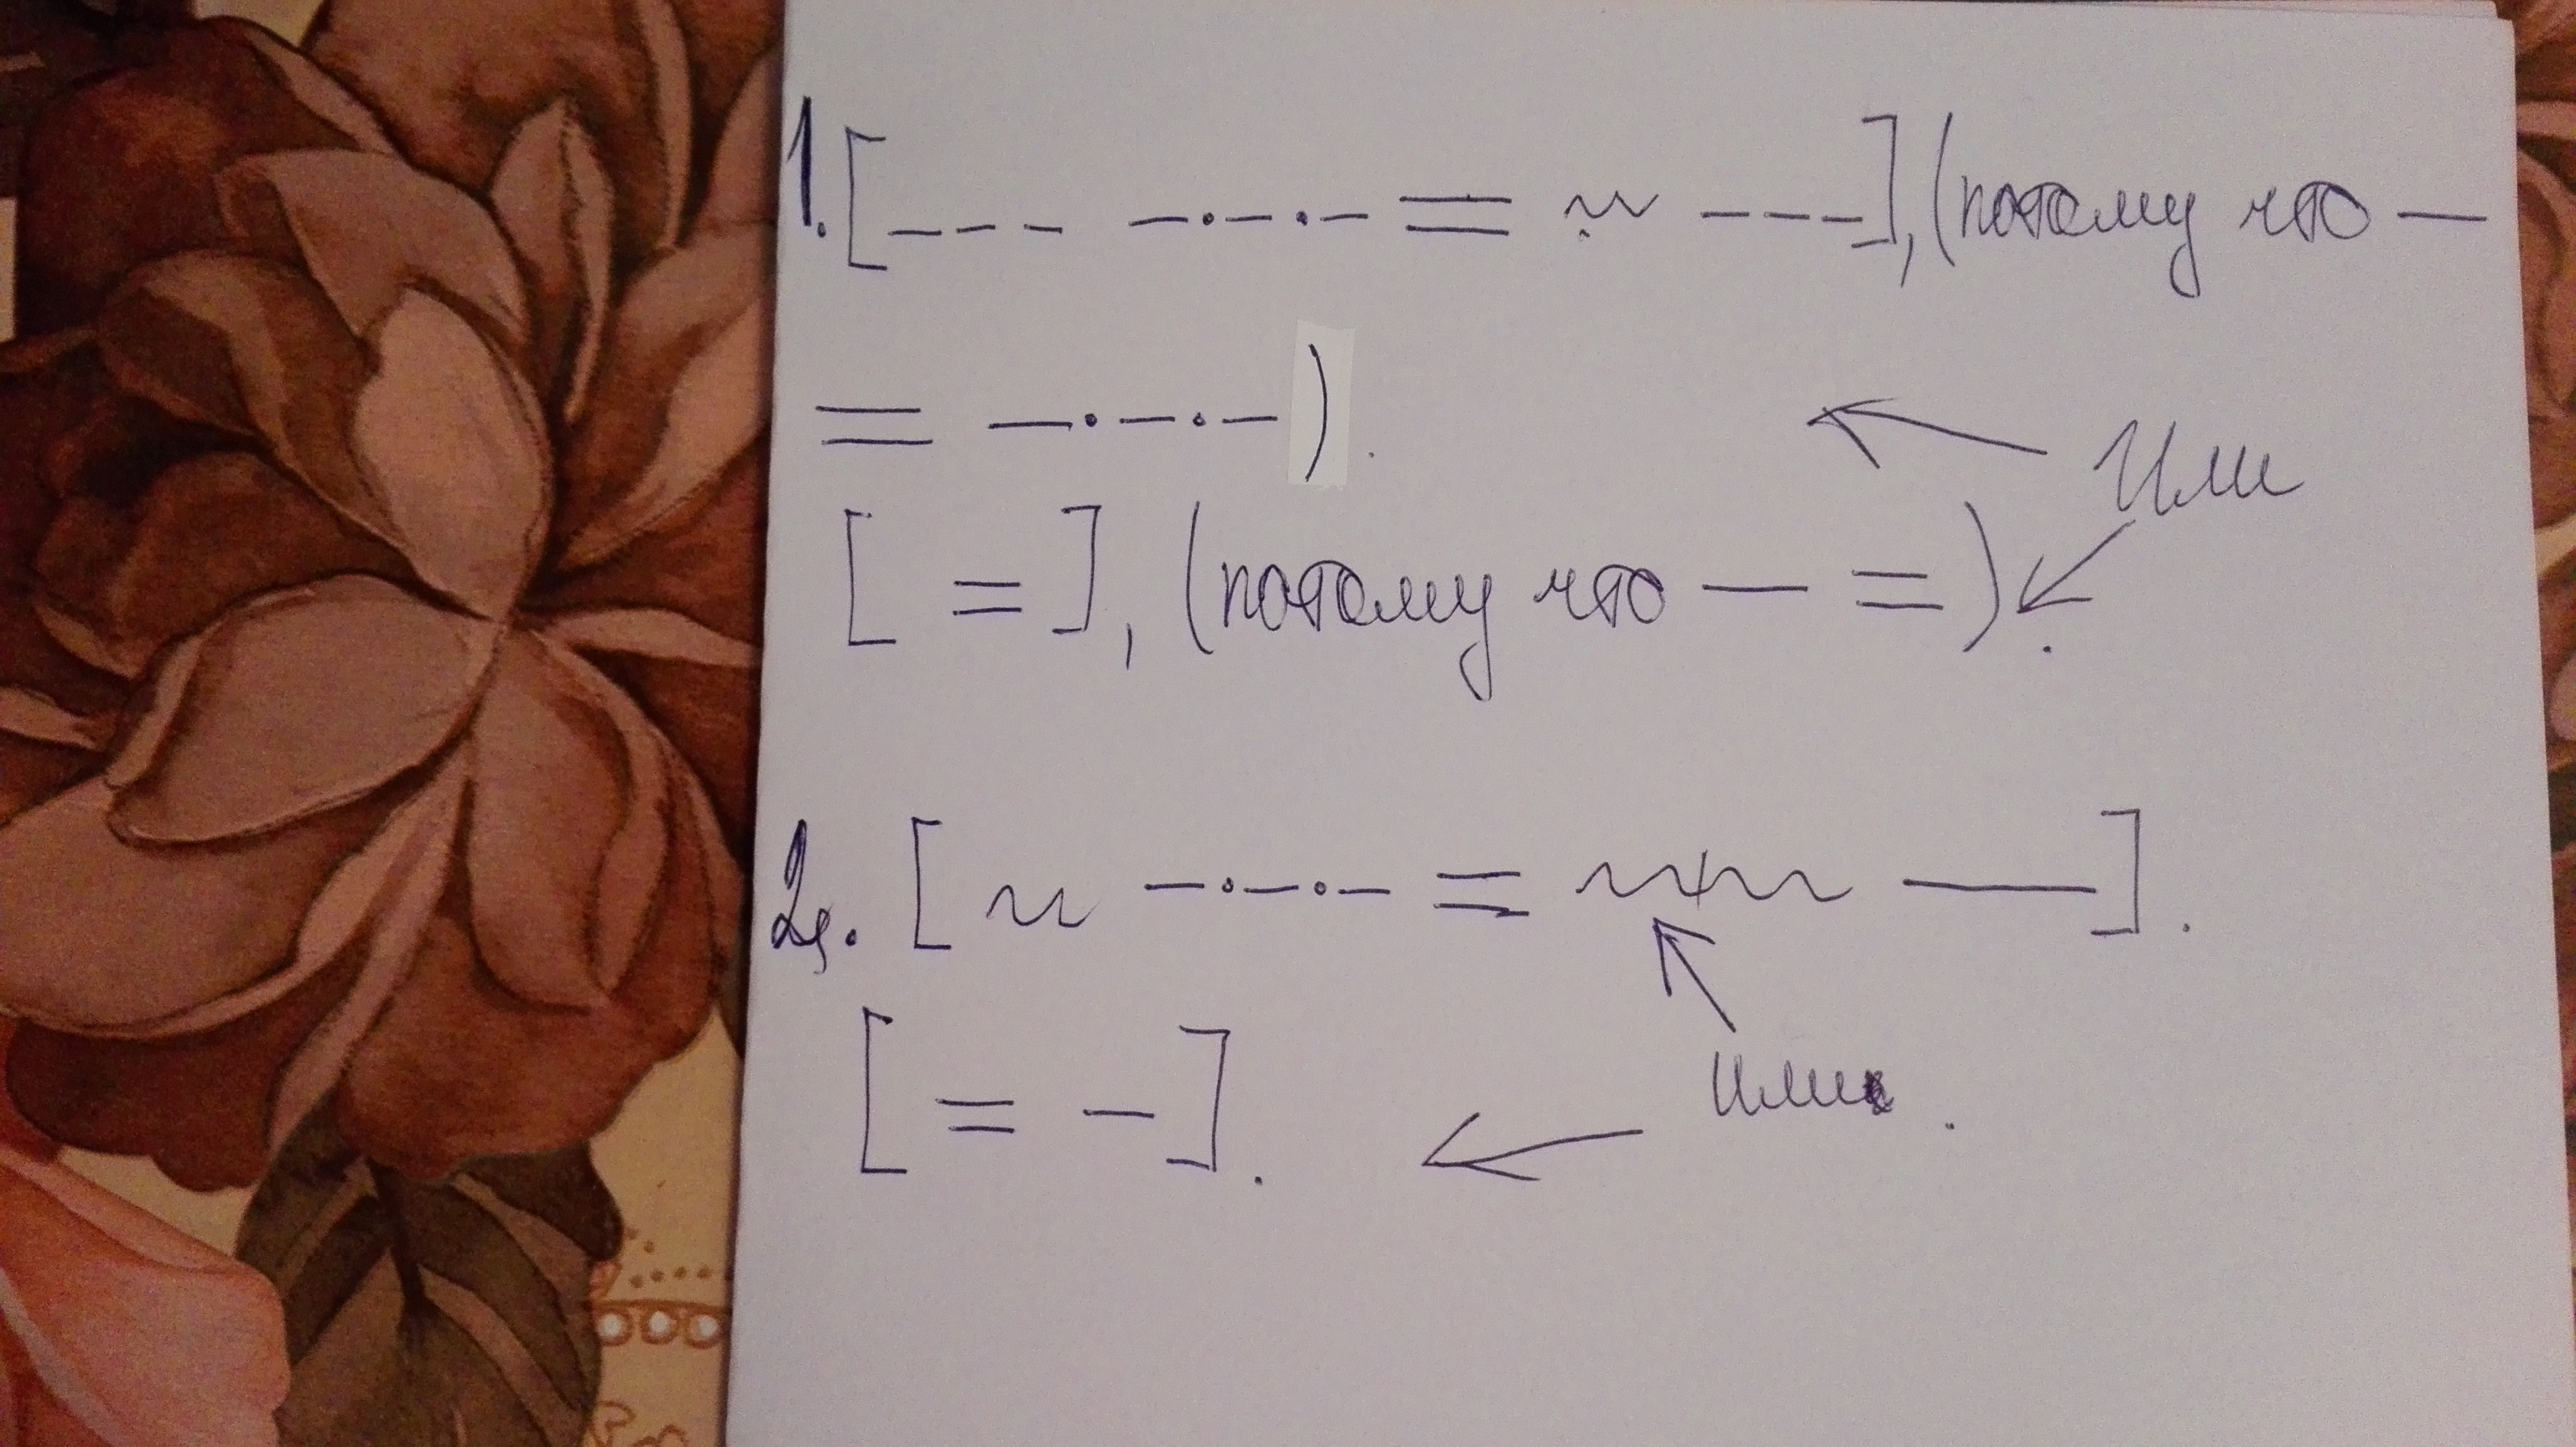 1. [--- —·—·— = ~~ ----], (потому что —
= —·—·—).
Или
[ = ], (потому что — =).
2. [ ~ —·—·— = ~~~~ — ].
или.
[ = — ].